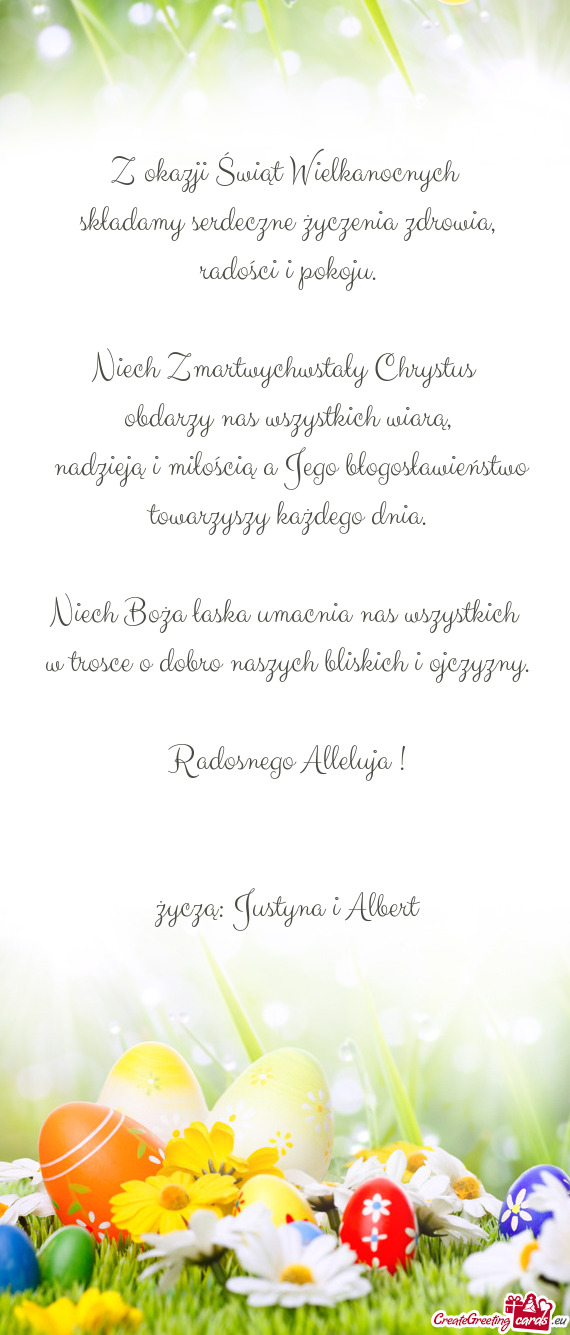 Z okazji Świąt Wielkanocnych
składamy serdeczne życzenia zdrowia,
radości i pokoju.
Niech Zmartwychwstały Chrystus
obdarzy nas wszystkich wiarą,
nadzieją i miłością a Jego błogosławieństwo
towarzyszy każdego dnia.
Niech Boża łaska umacnia nas wszystkich
w trosce o dobro naszych bliskich i ojczyzny.
Radosnego Alleluja !
życzą: Justyna i Albert
CreateGreeting cards .eu